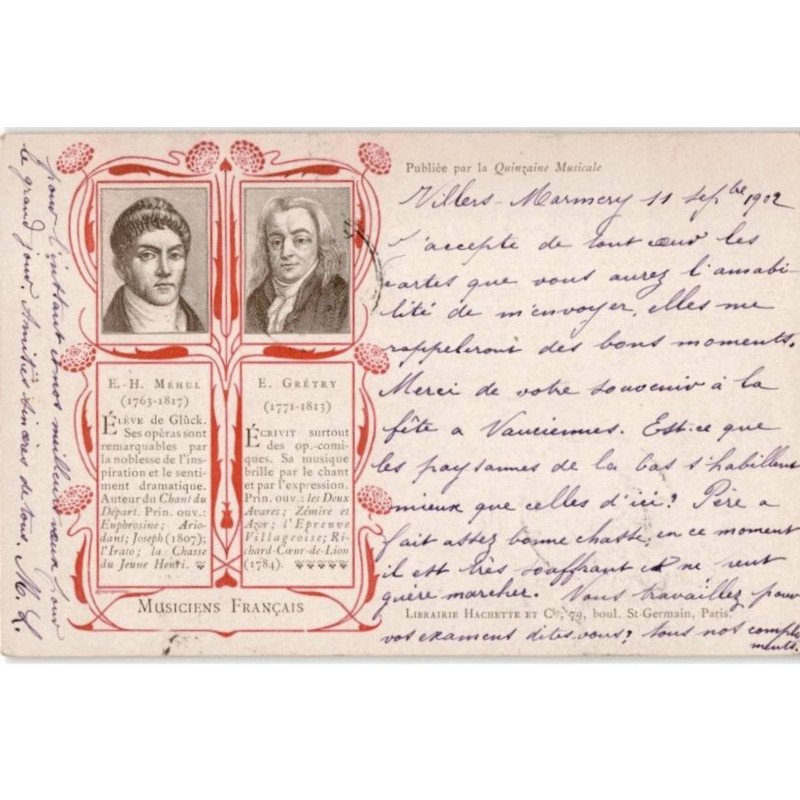 Publiée par la Quinzaine Musicale
Villers-Marmery 11 Sepbre 1902
J'accepte de tout cœur les
cartes que vous aurez l'amabi
lité de m'envoyer, elles me
rappelleront des bons moments.
Merci de votre souvenir à la
fête a Vauciennes. Est-ce que
les paysannes de la bas s'habillent
mieux que celles d'ici? Père a
fait assez bonne chasse, en ce moment
il est très souffrant et ne veut
guère marcher. Vous travaillez pour
vos examens dites-vous? tous nos complé
ments.
pour l'instant et nos meilleurs vœux pour
le grand jour. Amitiés sincères de tous. M. L.
E.-H. MÉHUL
(1763-1817)
ÉLÈVE de Glück.
Ses opéras sont
remarquables par
la noblesse de l'ins-
piration et le senti-
ment dramatique.
Auteur du Chant du
Départ. Prin. ouv.:
Euphrosine; Ario-
dant; Joseph (1807);
l'Irato; la Chasse
du Jeune Henri.
E. GRÉTRY
(1771-1813)
ÉCRIVIT surtout
des op.-comi-
ques. Sa musique
brille par le chant
et par l'expression.
Prin. ouv.: les Deux
Avares; Zémire et
Azor; l'Epreuve
Villageoise; Ri-
chard-Cœur-de-Lion
(1784).
MUSICIENS FRANÇAIS
LIBRAIRIE HACHETTE ET Cie, 79, boul. St-Germain, Paris.